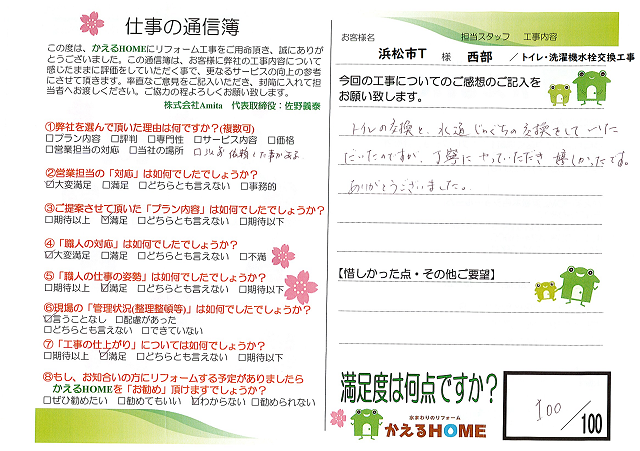 仕事の通信簿
この度は、かえるHOMEにリフォーム工事をご用命頂き、誠にありが
とうございました。この通信簿は、お客様に弊社の工事内容について
感じたままに評価をしていただく事で、更なるサービスの向上の参考
にさせて頂きます。率直なご意見をご記入いただき、封筒に入れて担
当者へお渡しください。ご協力の程よろしくお願い致します。
株式会社Amita 代表取締役：佐野義泰
①弊社を選んで頂いた理由は何ですか？(複数可)
□プラン内容 □評判 □専門性 □サービス内容 □価格
□営業担当の対応 □当社の場所 □以前依頼した事がある
②営業担当の「対応」は如何でしたでしょうか？
☑大変満足 □満足 □どちらとも言えない □事務的
③ご提案させて頂いた「プラン内容」は如何でしたでしょうか？
□期待以上 ☑満足 □どちらとも言えない □期待以下
④「職人の対応」は如何でしたでしょうか？
☑大変満足 □満足 □どちらとも言えない □不満
⑤「職人の仕事の姿勢」は如何でしたでしょうか？
□期待以上 ☑満足 □どちらとも言えない □期待以下
⑥現場の「管理状況(整理整頓等)」は如何でしたでしょうか？
☑言うことなし □配慮があった
□どちらとも言えない □できていない
⑦「工事の仕上がり」については如何でしょうか？
□期待以上 ☑満足 □どちらとも言えない □期待以下
⑧もし、お知合いの方にリフォームする予定がありましたら
かえるHOMEを「お勧め」頂けますでしょうか？
□ぜひ勧めたい □勧めてもいい ☑わからない □勧められない
お客様名 担当スタッフ 工事内容
浜松市T 様 西部 ／トイレ・洗濯機水栓交換工事
今回の工事についてのご感想のご記入を
お願い致します。
トイレの交換と、水道じゃぐちの交換をして いた
だいたのですが、丁寧にやっていただき 嬉しかったです。
ありがとうございました。
【惜しかった点・その他ご要望】
満足度は何点ですか？
100/100
水まわりのリフォーム
かえるHOME